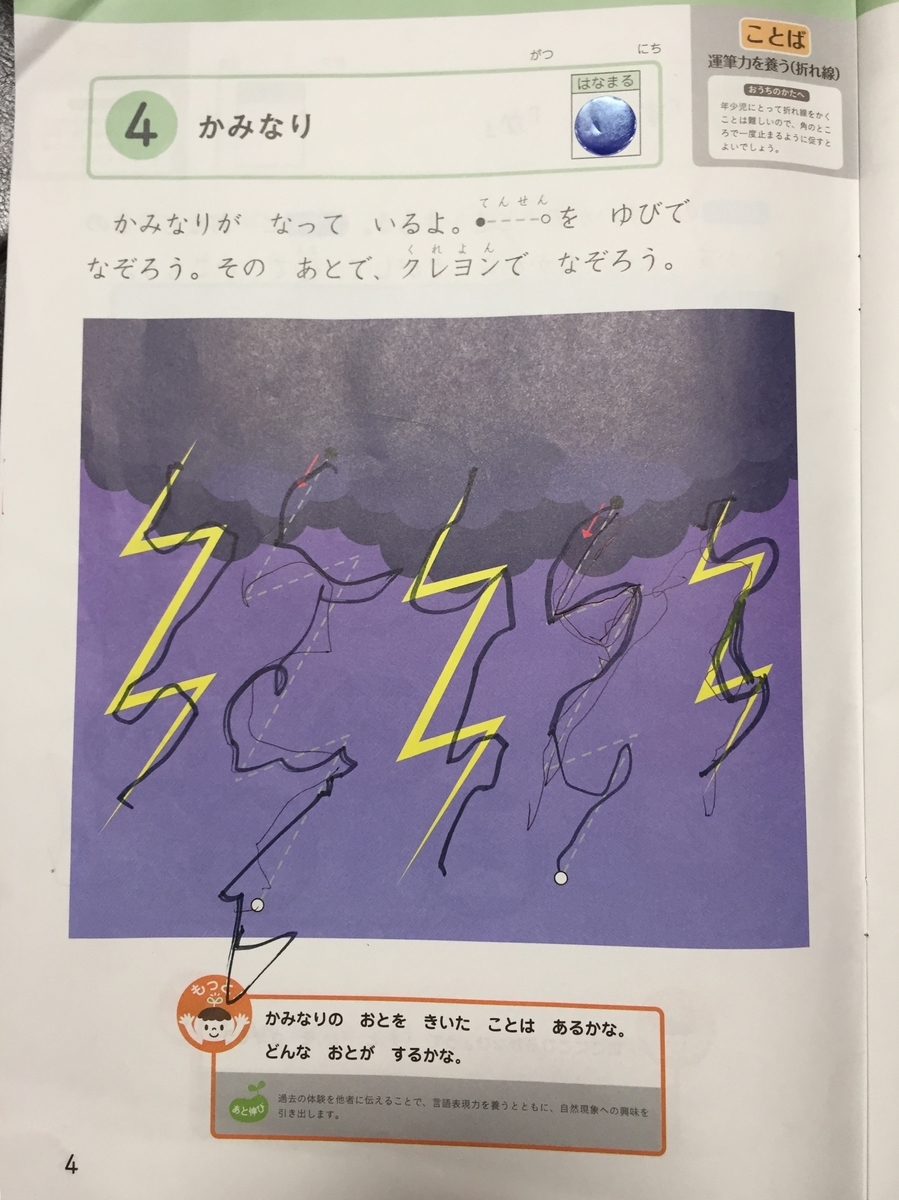 ことば
運筆力を養う(折れ線)
おうちのかたへ
年少児にとって折れ線をかく
ことは難しいので、角のとこ
ろで一度止まるように促すと
よいでしょう。
がつ にち
4 かみなり
はなまる
てんせん
かみなりが なって いるよ。●----○を ゆびで
くれよん
なぞろう。その あとで、クレヨンで なぞろう。
もっと
かみなりの おとを きいた ことは あるかな。
どんな おとが するかな。
あと伸び
過去の体験を他者に伝えることで、言語表現力を養うとともに、自然現象への興味を
引き出します。
4